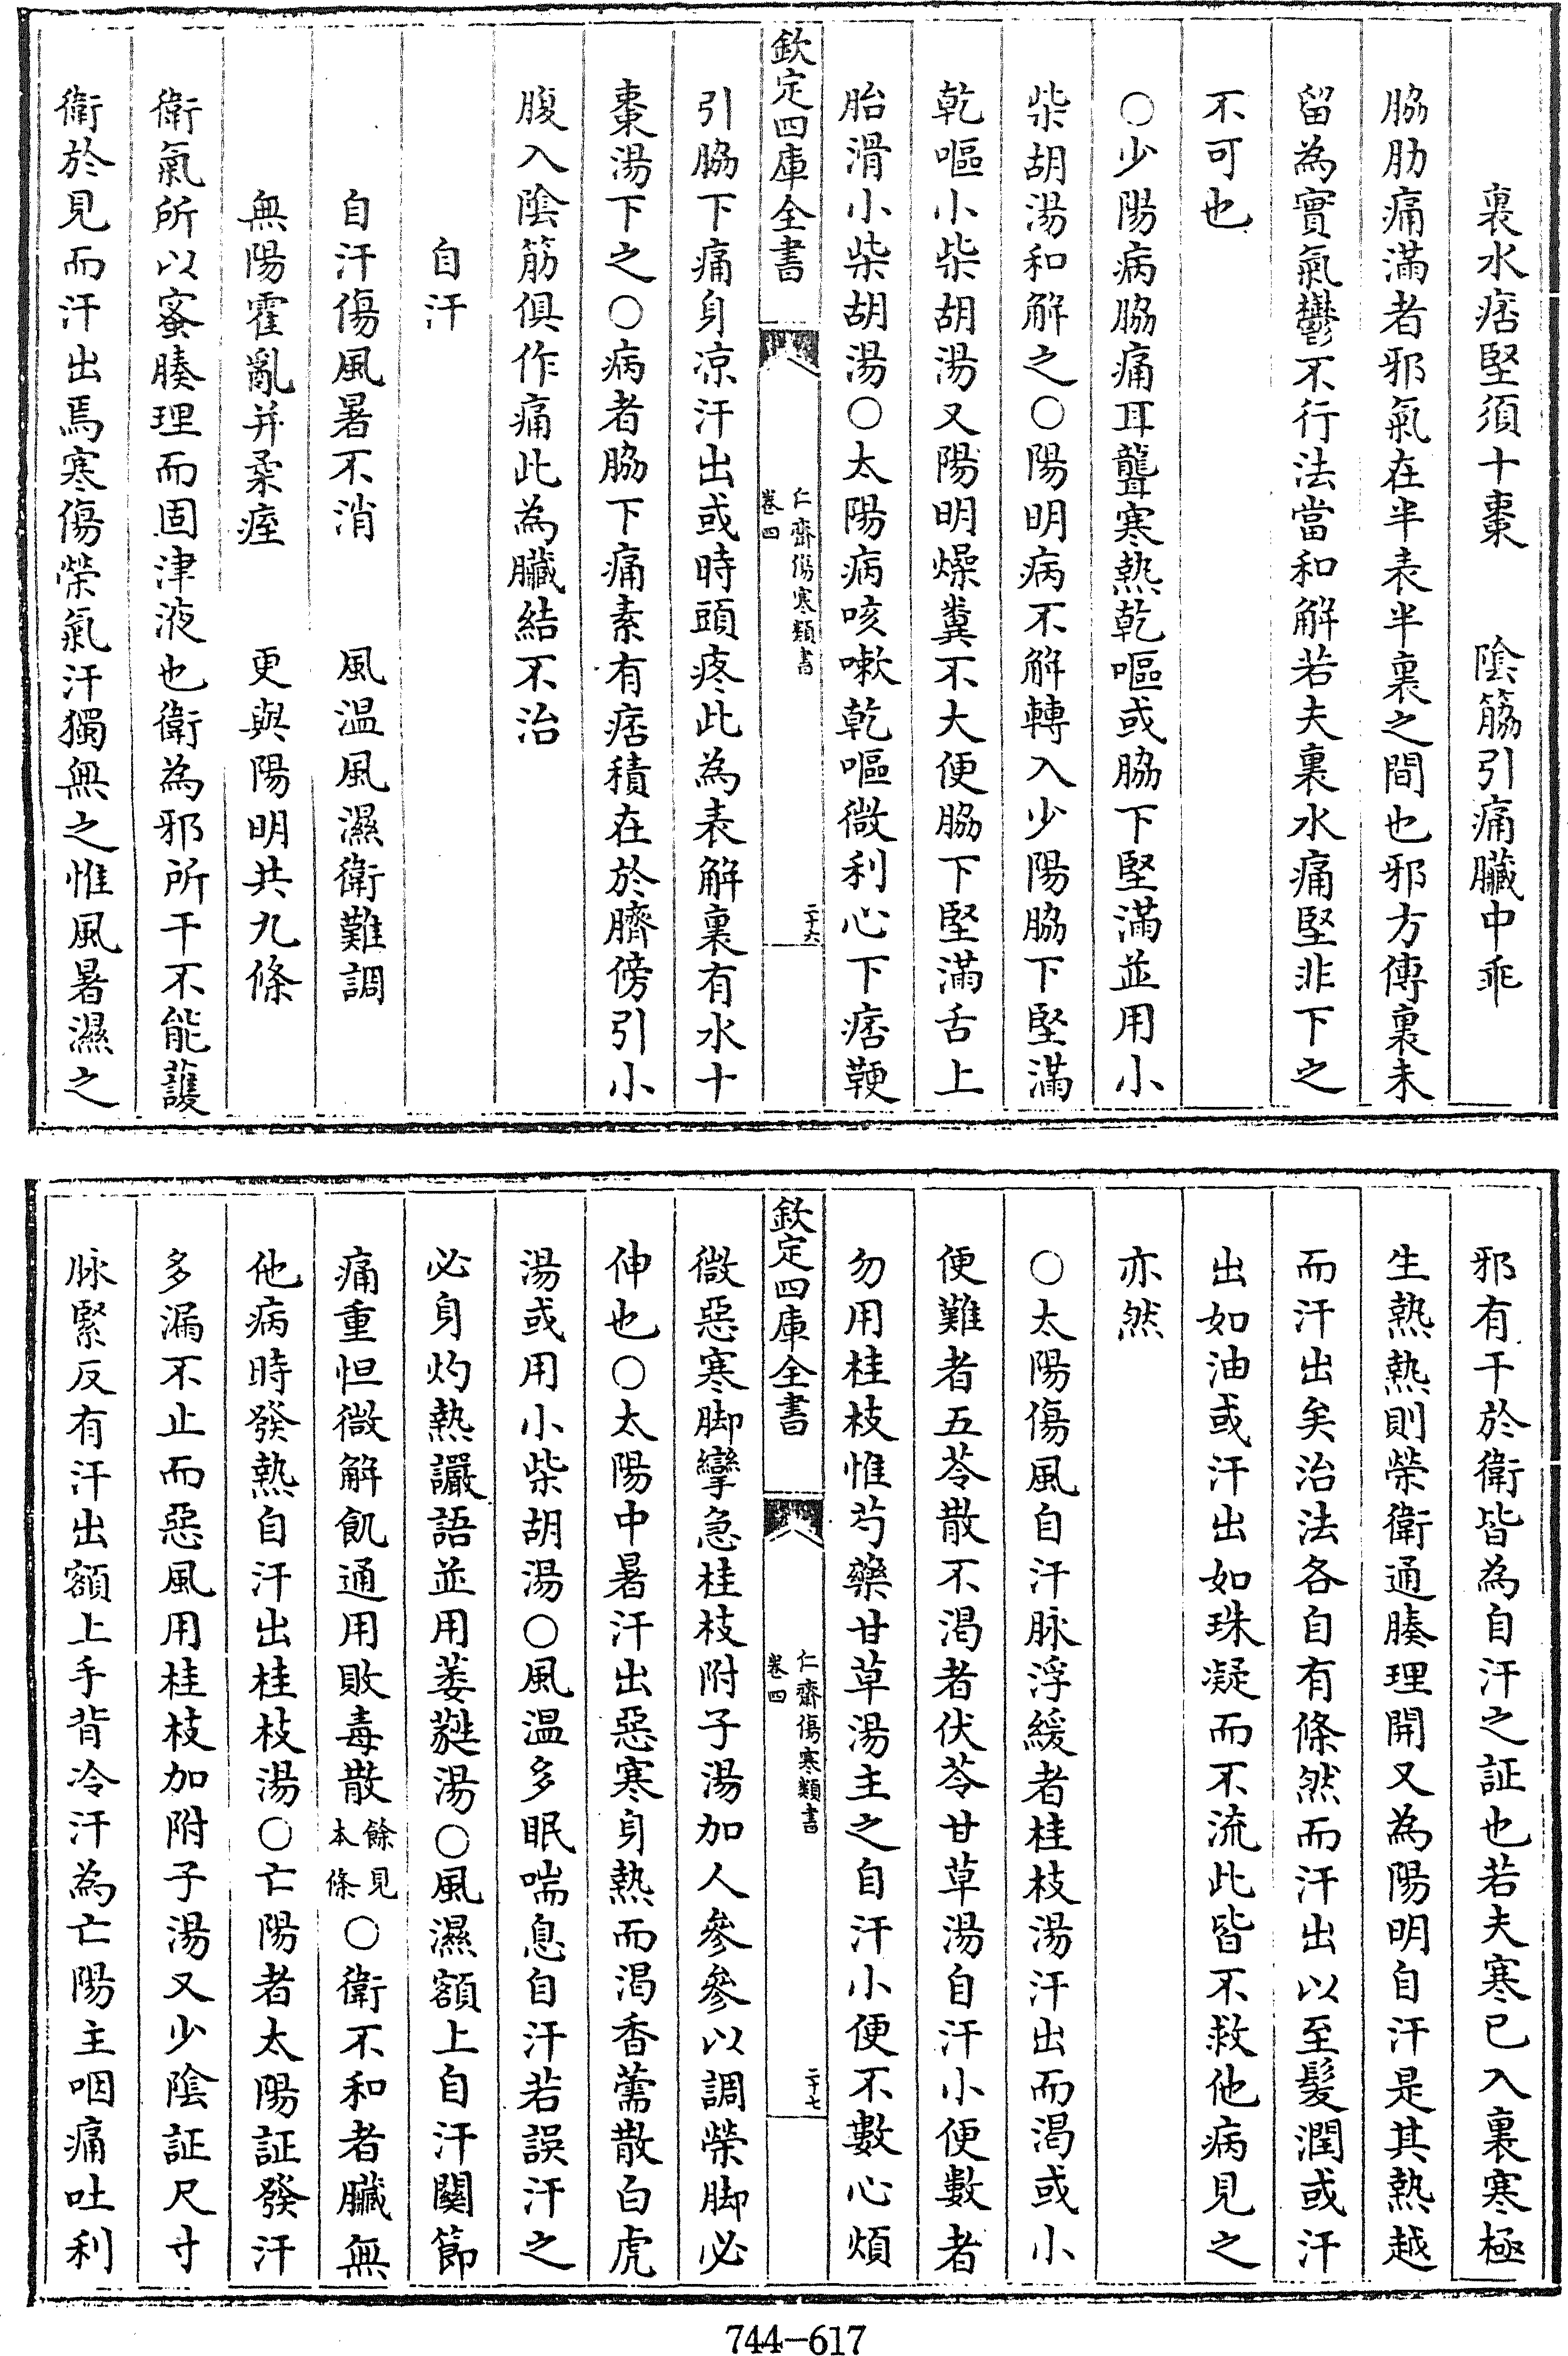 裏水痞堅須十棗　陰筋引痛臟中乖
脇肋痛滿者邪氣在半表半裏之間也邪方傳裏未
留為實氣鬱不行法當和解若夫裏水痛堅非下之
不可也
○少陽病脇痛耳聾寒熱乾嘔或脇下堅滿並用小
柴胡湯和解之○陽明病不解轉入少陽脇下堅滿
乾嘔小柴胡湯又陽明燥糞不大便脇下堅滿舌上
胎滑小柴胡湯○太陽病咳嗽乾嘔微利心下痞鞕
欽定四庫全書
仁齋傷寒類書
卷四
二十六
引脇下痛身凉汗出或時頭疼此為表解裏有水十
棗湯下之○病者脇下痛素有痞積在於臍傍引小
腹入陰筋俱作痛此為臟結不治
自汗
自汗傷風暑不消　風温風濕衛難調
無陽霍亂并柔痓　更與陽明共九條
衛氣所以蜜腠理而固津液也衛為邪所干不能護
衛於見而汗出焉寒傷榮氣汗獨無之惟風暑濕之
邪有干於衛皆為自汗之証也若夫寒已入裏寒極
生熱熱則榮衛通腠理開又為陽明自汗是其熱越
而汗出矣治法各自有條然而汗出以至髮潤或汗
出如油或汗出如珠凝而不流此皆不救他病見之
亦然
○太陽傷風自汗脉浮緩者桂枝湯汗出而渴或小
便難者五苓散不渴者伏苓甘草湯自汗小便數者
勿用桂枝惟芍藥甘草湯主之自汗小便不數心煩
欽定四庫全書
仁齋傷寒類書
卷四
二十七
微惡寒脚攣急桂枝附子湯加人參參以調榮脚必
伸也○太陽中暑汗出惡寒身熱而渴香薷散白虎
湯或用小柴胡湯○風温多眠喘息自汗若誤汗之
必身灼熱讝語並用萎蕤湯○風濕額上自汗關節
痛重怛微解飢通用敗毒散餘見本條○衛不和者臟無
他病時發熱自汗出桂枝湯○亡陽者太陽証發汗
多漏不止而惡風用桂枝加附子湯又少陰証尺寸
脉緊反有汗出額上手背冷汗為亡陽主咽痛吐利
744-617